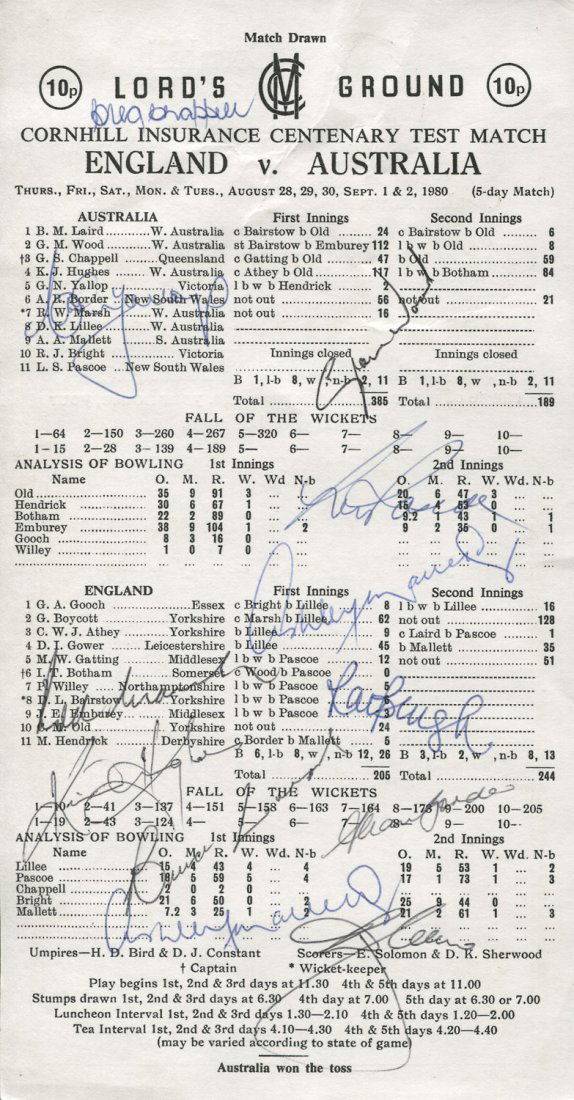 Match Drawn
10p LORD'S MCC GROUND 10p
Greg Chappell
CORNHILL INSURANCE CENTENARY TEST MATCH
ENGLAND v. AUSTRALIA
THURS., FRI., SAT., MON. & TUES., AUGUST 28, 29, 30, SEPT. 1 & 2, 1980 (5-day Match)
AUSTRALIA First Innings Second Innings
1 B. M. Laird W. Australia c Bairstow b Old 24 c Bairstow b Old 6
2 G. M. Wood W. Australia st Bairstow b Emburey 112 l b w b Old 8
†3 G. S. Chappell Queensland c Gatting b Old 47 b Old 59
4 K. J. Hughes W. Australia c Athey b Old 117 l b w b Botham 84
5 G. N. Yallop Victoria l b w b Hendrick 2
6 A. R. Border New South Wales not out 56 not out 21
*7 R. W. Marsh W. Australia not out 16
8 D. K. Lillee W. Australia
9 A. A. Mallett S. Australia
10 R. J. Bright Victoria Innings closed Innings closed
11 L. S. Pascoe New South Wales
B 1, l-b 8, w , n-b 2, 11 B 1, l-b 8, w , n-b 2, 11
Total 385 Total 189
Graeme Wood
FALL OF THE WICKETS
1—64 2—150 3—260 4—267 5—320 6— 7— 8— 9— 10—
1—15 2—28 3—139 4—189 5— 6— 7— 8— 9— 10—
ANALYSIS OF BOWLING 1st Innings 2nd Innings
Name O. M. R. W. Wd. N-b O. M. R. W. Wd. N-b
Old 35 9 91 3 ... ... 20 6 47 3 ... ...
Hendrick 30 6 67 1 ... ... 15 4 53 0 ... ...
Botham 22 2 89 0 ... ... 9.2 1 43 1 ... 1
Emburey 38 9 104 1 ... 2 9 2 35 0 ... 1
Gooch 8 3 16 0 ... ...
Willey 1 0 7 0 ... ...
Len Pascoe
Ashley Mallett
ENGLAND First Innings Second Innings
1 G. A. Gooch Essex c Bright b Lillee 8 l b w b Lillee 16
2 G. Boycott Yorkshire c Marsh b Lillee 62 not out 128
3 C. W. J. Athey Yorkshire b Lillee 9 c Laird b Pascoe 1
4 D. I. Gower Leicestershire b Lillee 45 b Mallett 35
5 M. W. Gatting Middlesex l b w b Pascoe 12 not out 51
†6 I. T. Botham Somerset c Wood b Pascoe 0
7 P. Willey Northamptonshire l b w b Pascoe 5
*8 D. L. Bairstow Yorkshire l b w b Pascoe 6
9 J. E. Emburey Middlesex l b w b Pascoe 3
10 C. M. Old Yorkshire not out 24
11 M. Hendrick Derbyshire c Border b Mallett 5
B 6, l-b 8, w , n-b 12, 26 B 3, l-b 2, w , n-b 8, 13
Total 205 Total 244
Ray Bright
Kim Hughes
FALL OF THE WICKETS
1—10 2—41 3—137 4—151 5—158 6—163 7—164 8—173 9—200 10—205
1—19 2—43 3—124 4— 5— 6— 7— 8— 9— 10—
Allan Border
ANALYSIS OF BOWLING 1st Innings 2nd Innings
Name O. M. R. W. Wd. N-b O. M. R. W. Wd. N-b
Lillee 15 4 43 4 ... 4 19 5 53 1 ... 2
Pascoe 18 5 59 5 ... 4 17 1 73 1 ... 3
Chappell 2 0 2 0 ... ...
Bright 21 6 50 0 ... 2 25 9 44 0 ... ...
Mallett 7.2 3 25 1 ... 2 21 2 61 1 ... 3
Ashley Mallett
Umpires—H. D. Bird & D. J. Constant Scorers—E. Solomon & D. K. Sherwood
† Captain * Wicket-keeper
Play begins 1st, 2nd & 3rd days at 11.30 4th & 5th days at 11.00
Stumps drawn 1st, 2nd & 3rd days at 6.30 4th day at 7.00 5th day at 6.30 or 7.00
Luncheon Interval 1st, 2nd & 3rd days 1.30—2.10 4th & 5th days 1.20—2.00
Tea Interval 1st, 2nd & 3rd days 4.10—4.30 4th & 5th days 4.20—4.40
(may be varied according to state of game)
Australia won the toss